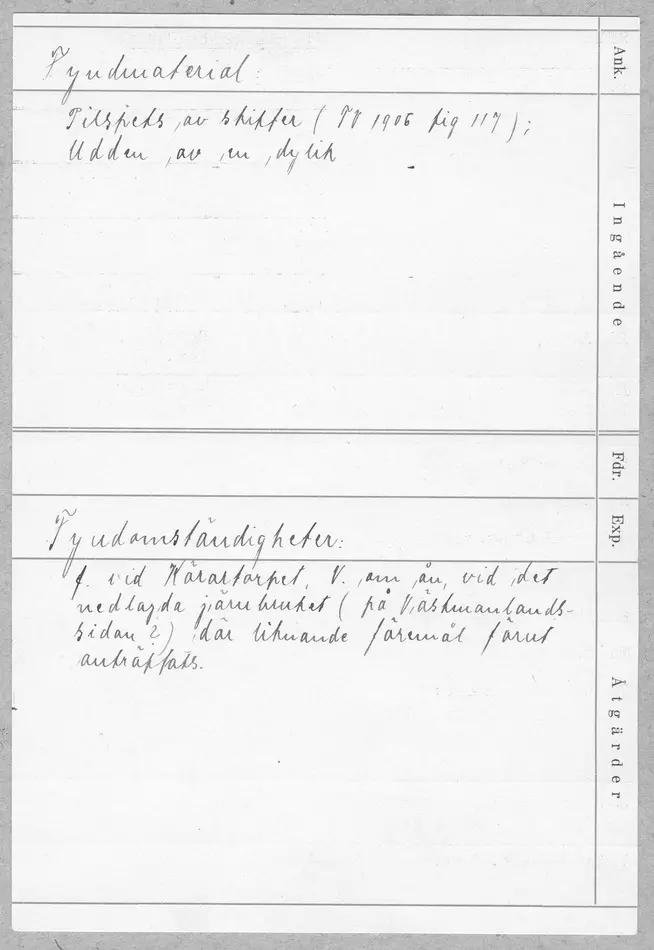 Fyndmaterial:
Pilspets av skiffer (TV 1906 fig 117);
Udden av en dylik
Fyndomständigheter:
f. vid V. om ån, vid det
nedlagda järnbruket (på Västmanlands-
sidan ?) där liknande föremål förut
anträffats.
Ank.
Ingående
Fdr.
Exp.
Åtgärder